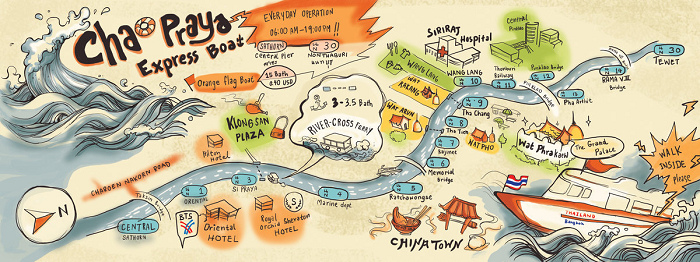 Chao Praya
Express Boat
EVERYDAY OPERATION
06:00 AM-19:00PM !!
SATHORN
CENTRAL Pier
N 30
NONTHABURI
Orange flag Boat
15 Bath
0.40 USD
KLONGSAN
PLAZA
3-3.5 Bath
RIVER-CROSS FERRY
SIRIRAJ
Hospital
CENTRAL
Pinklao
WANG LANG
WANG LANG
10
Thonburi
Railway
11
Pinklao Bridge
12
13
Pha Arthit
14
RAMA VIII
Bridge
N 30
TEWET
WAT
RAKANG
9
Tha Chang
WAT ARUN
8
Tha Tien
WAT PHO
7
Rajinee
6
Memorial
Bridge
5
Ratchawongse
4
Marine dept.
3
SI PRAYA
1
ORIENTAL
CENTRAL
SATHORN
Taksin Bridge
CHAROEN NAKORN ROAD
Hilton
HOTEL
BTS
Oriental
HOTEL
Royal
Orchid Sheraton
HOTEL
S
N
CHINA TOWN
Wat Phrakaew
The Grand
Palace
WALK
INSIDE
Please
THAILAND
Bangkok